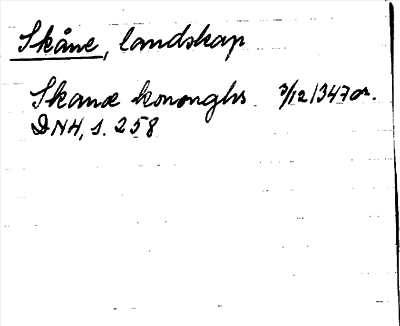 Skåne, landskap
Skanæ kononghs 7/12 1347 or.
DN4, s. 258